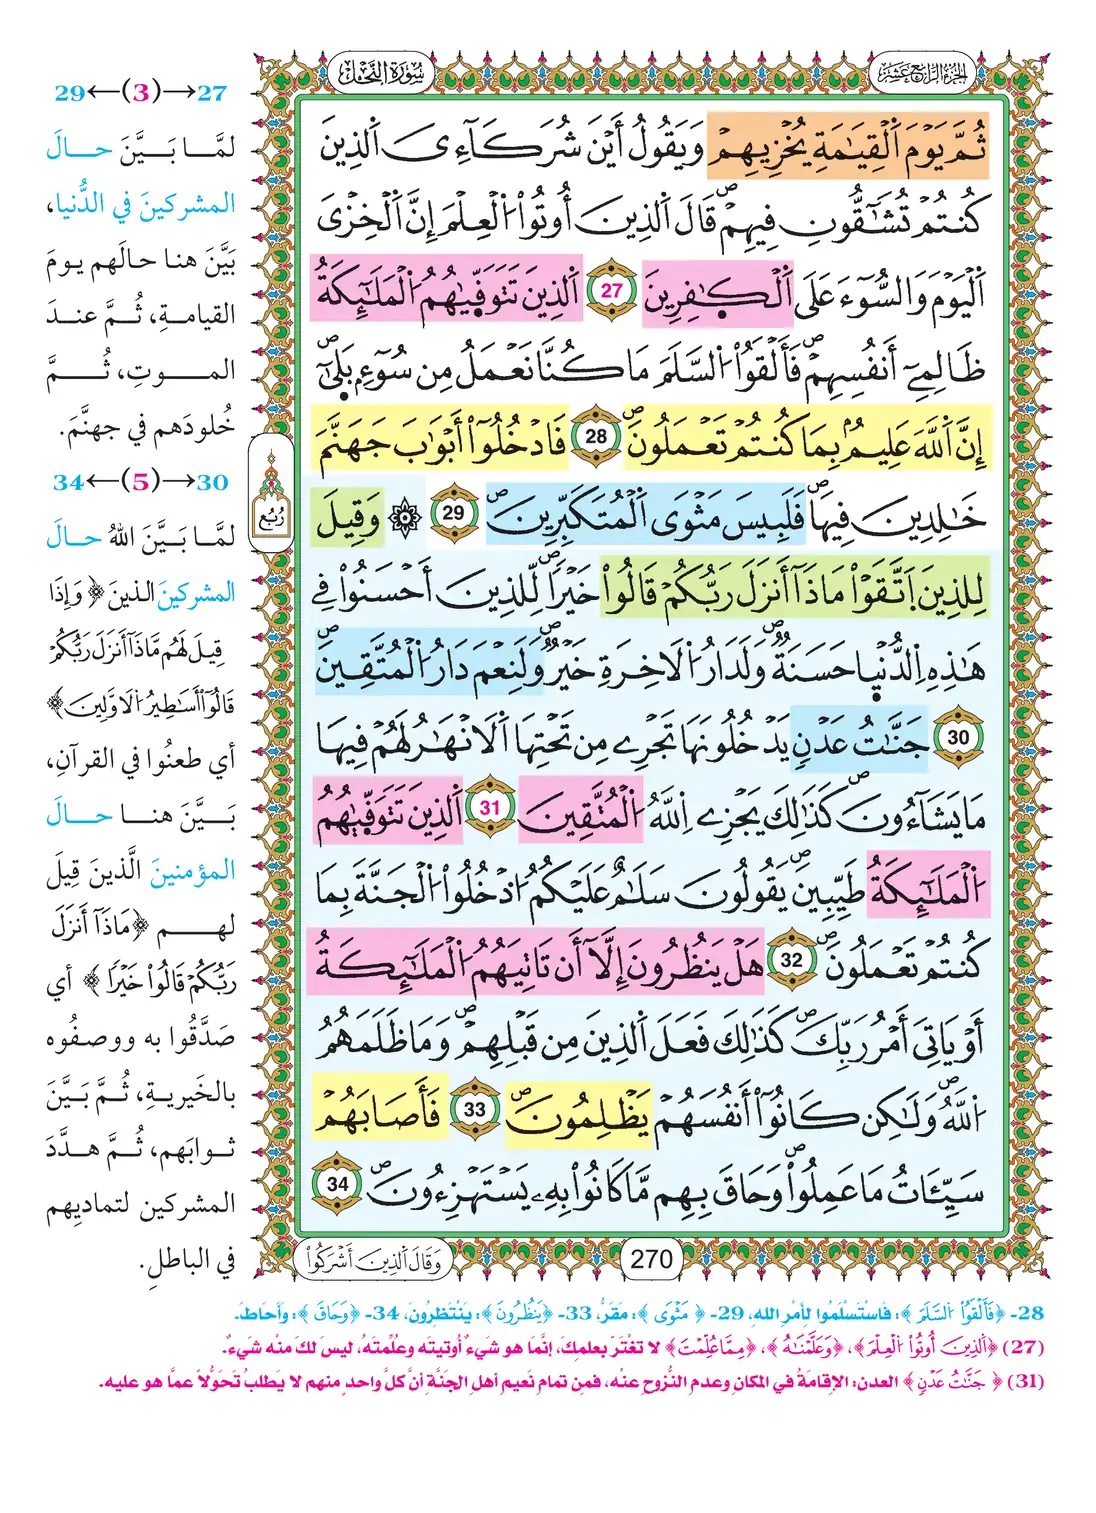 الجزء الرابع عشر
سورة النحل
ثُمَّ يَوْمَ اَ۬لْقِيَٰمَةِ يُخْزِيهِمْ وَيَقُولُ أَيْنَ شُرَكَآءِيَ اَ۬لذِينَ
كُنتُمْ تُشَٰٓقُّونِ فِيهِمْۖ قَالَ اَ۬لذِينَ أُوتُواْ اُ۬لْعِلْمَ إِنَّ اَ۬لْخِزْيَ
اَ۬لْيَوْمَ وَالسُّوٓءَ عَلَى اَ۬لْكَٰفِرِينَ 27 اَ۬لذِينَ تَتَوَفّ۪يٰهُمُ اُ۬لْمَلَٰٓئِكَةُ
ظَالِمِےٓ أَنفُسِهِمْۖ فَأَلْقَوُاْ اُ۬لسَّلَمَ مَا كُنَّا نَعْمَلُ مِن سُوٓءِۢ بَل۪يٰٓۖ
إِنَّ اَ۬للَّهَ عَلِيمُۢ بِمَا كُنتُمْ تَعْمَلُونَۖ 28 فَادْخُلُوٓاْ أَبْوَٰبَ جَهَنَّمَ
خَٰلِدِينَ فِيهَاۖ فَلَبِيسَ مَثْوَى اَ۬لْمُتَكَبِّرِينَۖ 29 ۞ وَقِيلَ
لِلذِينَ اَ۪تَّقَوْاْ مَاذَآ أَنزَلَ رَبُّكُمْ قَالُواْ خَيْراٗۖ لِّلذِينَ أَحْسَنُواْ فِے
هَٰذِهِ اِ۬لدُّنْي۪ا حَسَنَةٞۖ وَلَدَارُ اُ۬لَاخِرَةِ خَيْرٞۖ وَلَنِعْمَ دَارُ اُ۬لْمُتَّقِينَۖ
30 جَنَّٰتُ عَدْنٖ يَدْخُلُونَهَا تَجْرِے مِن تَحْتِهَا اَ۬لَانْهَٰرُ لَهُمْ فِيهَا
مَا يَشَآءُونَۖ كَذَٰلِكَ يَجْزِے اِ۬للَّهُ اُ۬لْمُتَّقِينَ 31 اَ۬لذِينَ تَتَوَفّ۪يٰهُمُ
اُ۬لْمَلَٰٓئِكَةُ طَيِّبِينَۖ يَقُولُونَ سَلَٰمٌ عَلَيْكُمُ اُ۟دْخُلُواْ اُ۬لْجَنَّةَ بِمَا
كُنتُمْ تَعْمَلُونَۖ 32 هَلْ يَنظُرُونَ إِلَّآ أَن تَاتِيَهُمُ اُ۬لْمَلَٰٓئِكَةُ
أَوْ يَاتِيَ أَمْرُ رَبِّكَۖ كَذَٰلِكَ فَعَلَ اَ۬لذِينَ مِن قَبْلِهِمْۖ وَمَا ظَلَمَهُمُ
اُ۬للَّهُ وَلَٰكِن كَانُوٓاْ أَنفُسَهُمْ يَظْلِمُونَۖ 33 فَأَصَابَهُمْ
سَيِّـَٔاتُ مَا عَمِلُواْۖ وَحَاقَ بِهِم مَّا كَانُواْ بِهِۦ يَسْتَهْزِءُونَۖ 34
رُبُع
270
وَقَالَ اَ۬لذِينَ أَشْرَكُواْ
27→(3)←29
لمَّا بَيَّنَ حالَ
المشركينَ في الدُّنيا،
بَيَّنَ هنا حالَهم يومَ
القيامةِ، ثُمَّ عندَ
الموتِ، ثُمَّ
خُلودَهم في جهنَّمَ.
30→(5)←34
لمَّا بَيَّنَ اللهُ حالَ
المشركينَ الذينَ ﴿وَإِذَا
قِيلَ لَهُم مَّاذَآ أَنزَلَ رَبُّكُمْ
قَالُوٓاْ أَسَٰطِيرُ اُ۬لَاوَّلِينَ﴾
أي طعنُوا في القرآنِ،
بَيَّنَ هنا حالَ
المؤمنينَ الَّذينَ قِيلَ
لهم ﴿مَاذَآ أَنزَلَ
رَبُّكُمْ قَالُواْ خَيْراٗ﴾ أي
صَدَّقُوا به ووصفُوه
بالخَيريةِ، ثُمَّ بَيَّنَ
ثوابَهم، ثُمَّ هدَّدَ
المشركين لتماديِهم
في الباطلِ.
28- ﴿فَأَلْقَوُاْ اُ۬لسَّلَمَ﴾: فَاسْتَسْلَمُوا لأمْرِ اللهِ، 29- ﴿مَثْوَى﴾: مَقَرُّ، 33- ﴿يَنظُرُونَ﴾: يَنْتَظِرُونَ، 34- ﴿وَحَاقَ﴾: وَأَحَاطَ.
(27) ﴿اَ۬لذِينَ أُوتُواْ اُ۬لْعِلْمَ﴾، ﴿وَعَلَّمْنَٰهُ﴾، ﴿مِمَّا عُلِّمْتَ﴾ لا تغْتَرّ بعلمِكَ، إنَّما هو شَيءٌ أُوتيتَه وعُلِّمتَهُ، ليس لكَ منْه شيءٌ.
(31) ﴿جَنَّٰتُ عَدْنٖ﴾ العدن: الإقامةُ في المكانِ وعدم النُّزوحِ عنْه، فمِن تمام نَعيم أهلِ الجنَّةِ أنَّ كلَّ واحدٍ منهم لا يطلبُ تَحَوُّلًا عمَّا هو عليه.